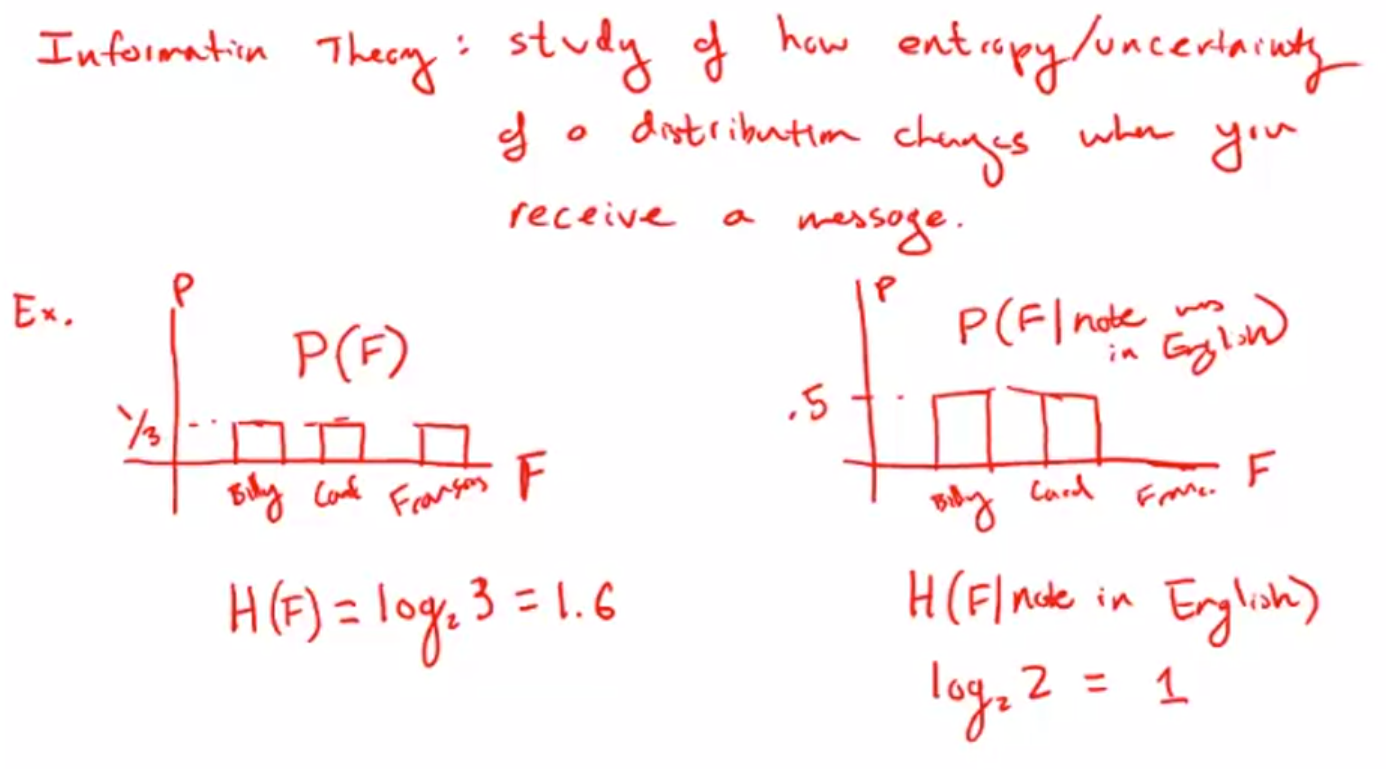 Information Theory: study of how entropy/uncertainty
of a distribution changes when you
receive a message.
Ex.
P
P(F)
1/3
Billy
F
H(F) = log₂ 3 = 1.6
P
P(F|note was
in English)
.5
Billy Carol Franc.
F
H(F|note in English)
log₂ 2 = 1